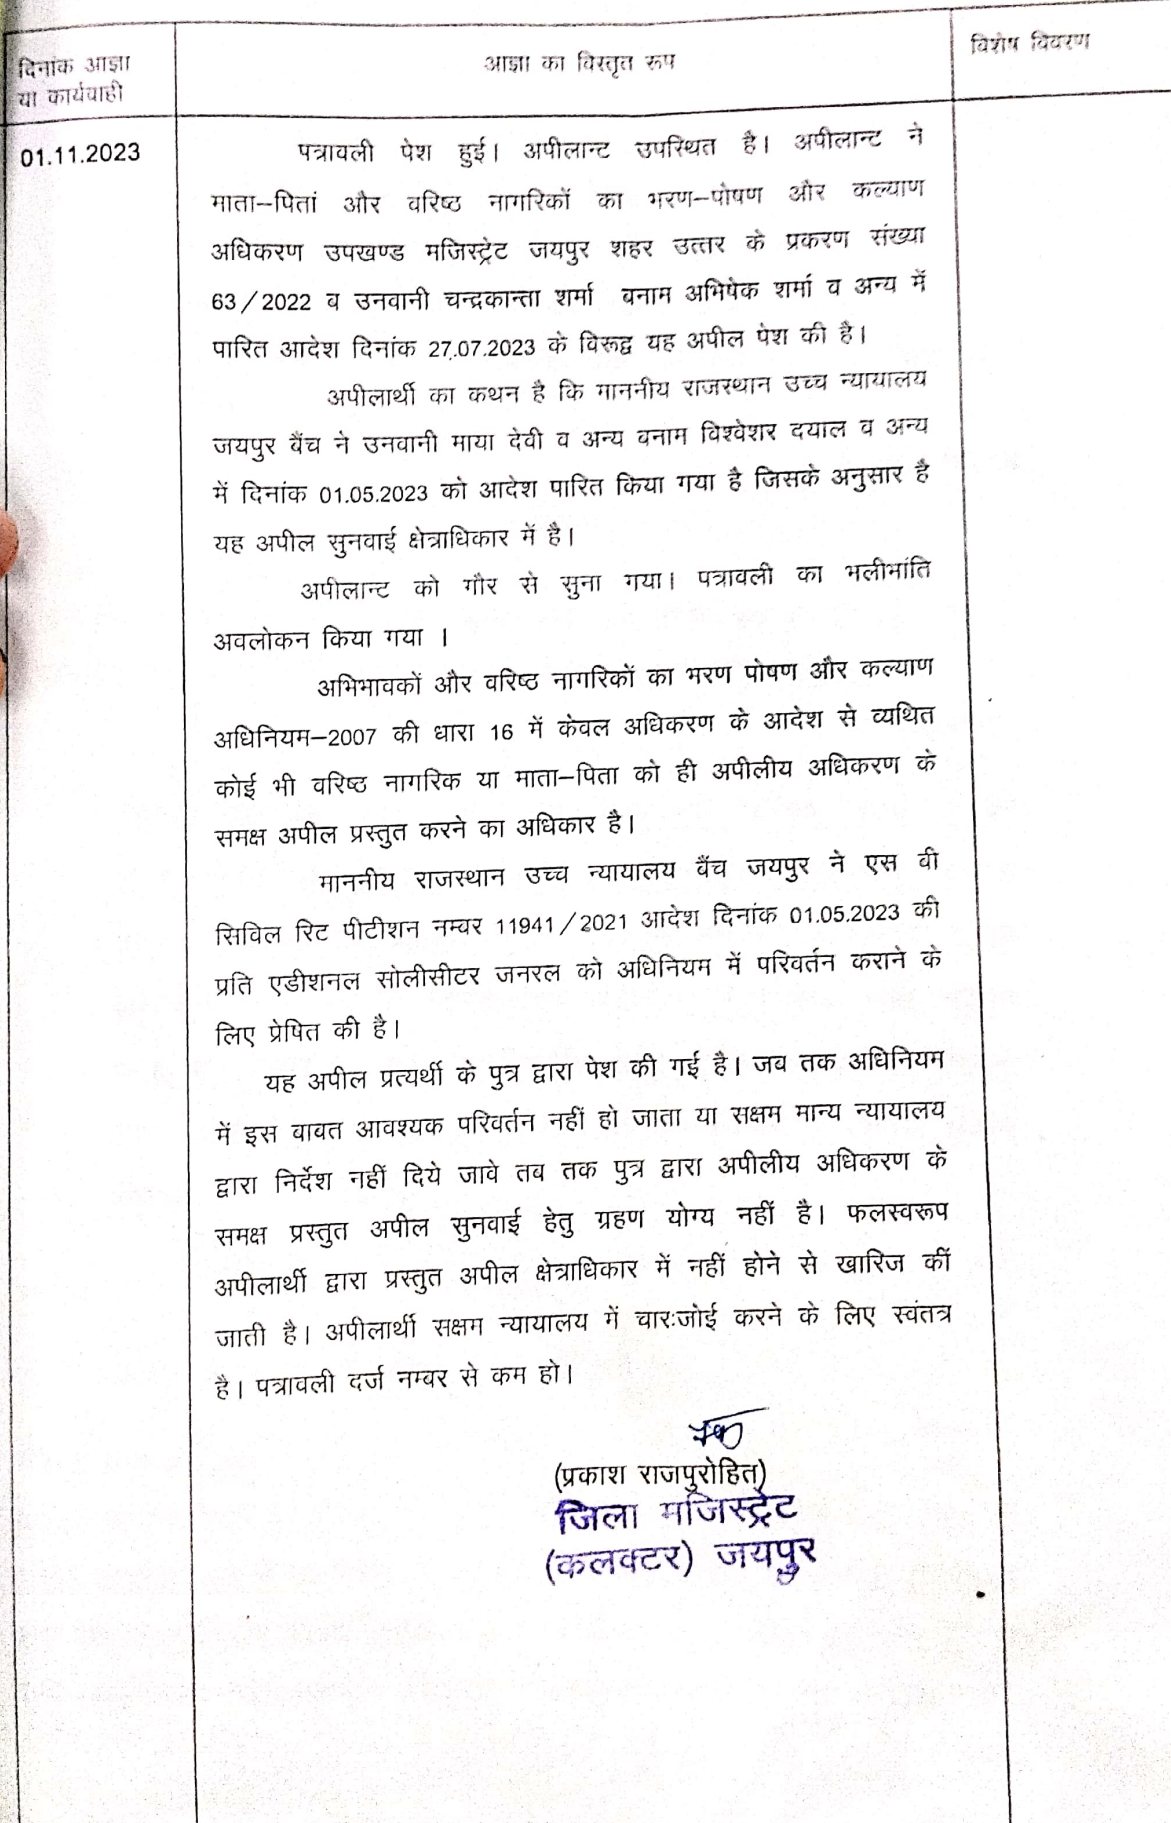 दिनांक आज्ञा
या कार्यवाही
आज्ञा का विस्तृत रूप
विशेष विवरण
01.11.2023
पत्रावली पेश हुई। अपीलान्ट उपस्थित है। अपीलान्ट ने
माता–पितां और वरिष्ठ नागरिकों का भरण–पोषण और कल्याण
अधिकरण उपखण्ड मजिस्ट्रेट जयपुर शहर उत्तर के प्रकरण संख्या
63/2022 व उनवानी चन्द्रकान्ता शर्मा बनाम अभिषेक शर्मा व अन्य में
पारित आदेश दिनांक 27.07.2023 के विरूद्व यह अपील पेश की है।
अपीलार्थी का कथन है कि माननीय राजस्थान उच्च न्यायालय
जयपुर बैंच ने उनवानी माया देवी व अन्य बनाम विश्वेशर दयाल व अन्य
में दिनांक 01.05.2023 को आदेश पारित किया गया है जिसके अनुसार है
यह अपील सुनवाई क्षेत्राधिकार में है।
अपीलान्ट को गौर से सुना गया। पत्रावली का भलीभांति
अवलोकन किया गया ।
अभिभावकों और वरिष्ठ नागरिकों का भरण पोषण और कल्याण
अधिनियम–2007 की धारा 16 में केवल अधिकरण के आदेश से व्यथित
कोई भी वरिष्ठ नागरिक या माता–पिता को ही अपीलीय अधिकरण के
समक्ष अपील प्रस्तुत करने का अधिकार है।
माननीय राजस्थान उच्च न्यायालय बैंच जयपुर ने एस बी
सिविल रिट पीटीशन नम्बर 11941/2021 आदेश दिनांक 01.05.2023 की
प्रति एडीशनल सोलीसीटर जनरल को अधिनियम में परिवर्तन कराने के
लिए प्रेषित की है।
यह अपील प्रत्यर्थी के पुत्र द्वारा पेश की गई है। जब तक अधिनियम
में इस बाबत आवश्यक परिवर्तन नहीं हो जाता या सक्षम मान्य न्यायालय
द्वारा निर्देश नहीं दिये जावे तब तक पुत्र द्वारा अपीलीय अधिकरण के
समक्ष प्रस्तुत अपील सुनवाई हेतु ग्रहण योग्य नहीं है। फलस्वरूप
अपीलार्थी द्वारा प्रस्तुत अपील क्षेत्राधिकार में नहीं होने से खारिज कीं
जाती है। अपीलार्थी सक्षम न्यायालय में चारःजोई करने के लिए स्वंतत्र
है। पत्रावली दर्ज नम्बर से कम हो।
(प्रकाश राजपुरोहित)
जिला मजिस्ट्रेट
(कलक्टर) जयपुर